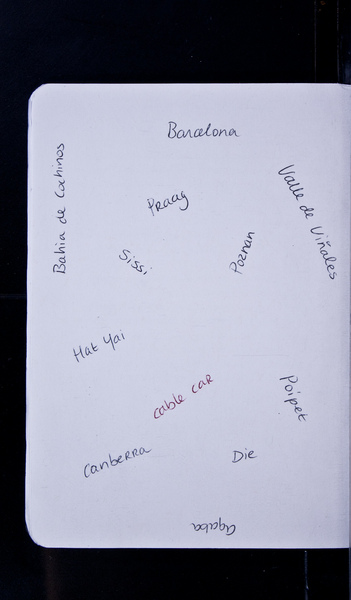 Barcelona
Bahia de Cochinos
Praag
Valle de Viñales
Sissi
Poznan
Hat Yai
cable car
Poipet
Canberra
Die
Aqaba